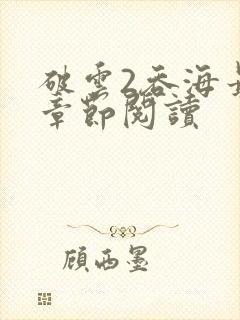 破雲2吞海最
章節閱讀
顾西墨